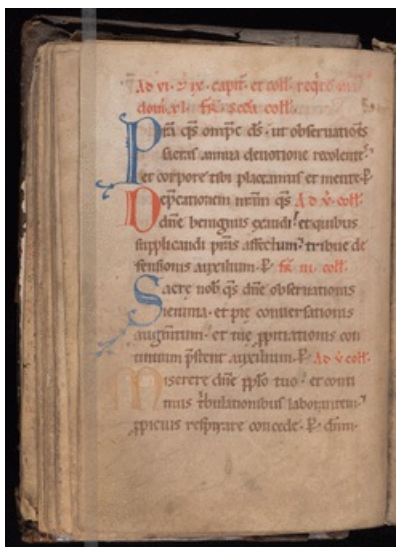 Ad vi. ⁊ ix. capit̃. et coll̃. req̃re
coll̃.
Pr̃a q̃s om̃ps ds̃. ut obseruatiões
sacras annua deuotione recolentes.
et corpore tibi placeamus et mente. P.
Dep̃cationem nr̃am q̃s Ad v̾. coll̃.
dñe benignus exaudi. et quibus
supplicandi p̃stas affectum. tribue de
fensionis auxilium. P. fr̃. iii. coll̃.
Sacre nob̃. q̃s dñe obseruationis
ieiunia. et pie conuersationis
augm̃tum. et tue ꝓpitiationis con
tinuum p̃stent auxilium. P. Ad v̾ coll̃.
Miserere dñe pp̃lo tuo. et conti
nuis t̾bulationibus laborantem.
ꝓpicius respirare concede. P. dñm.